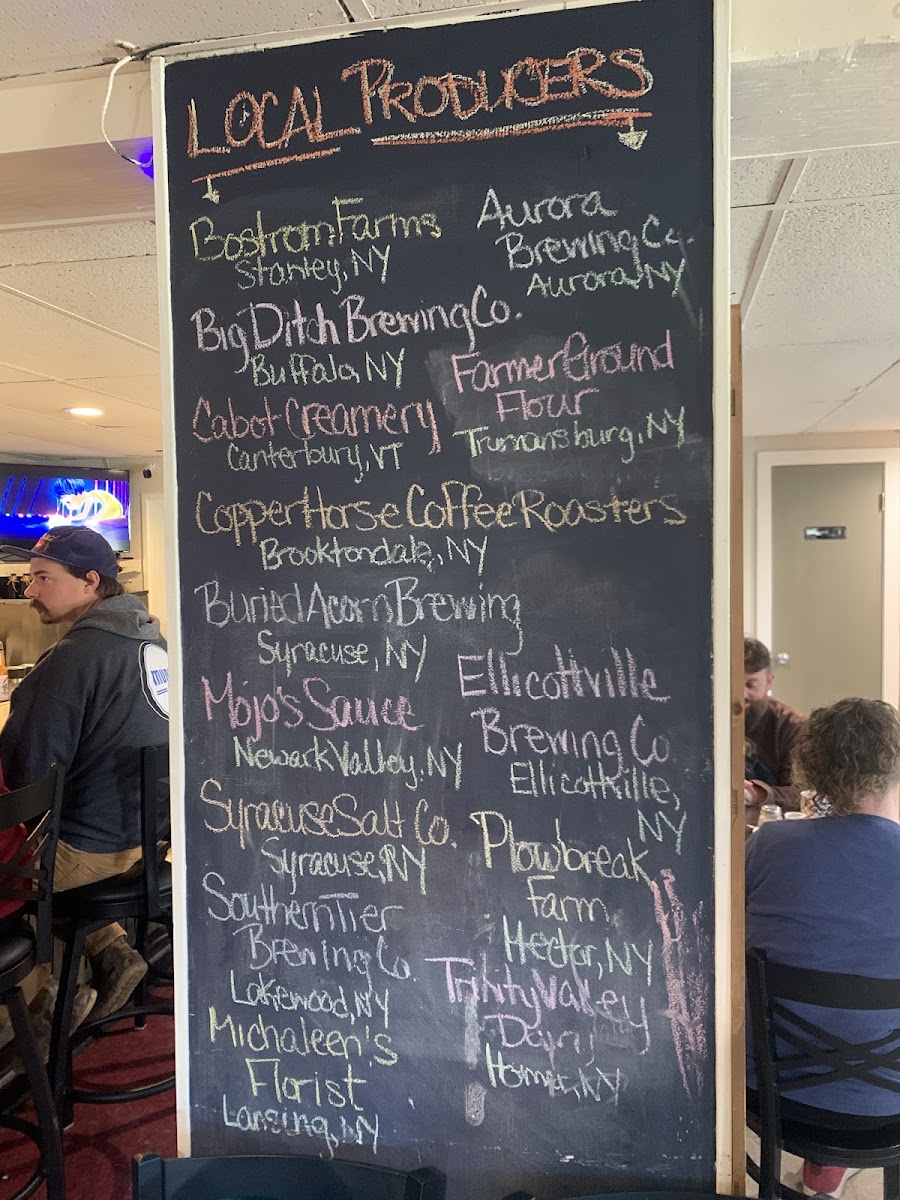 LOCAL PRODUCERS
Bostrom Farms
Stanley, NY
Aurora
Brewing Co.
Aurora, NY
Big Ditch Brewing Co.
Buffalo, NY
Farmer Ground
Flour
Trumansburg, NY
Cabot Creamery
Canterbury, VT
Copper Horse Coffee Roasters
Brooktondale, NY
Buried Acorn Brewing
Syracuse, NY
Ellicottville
Brewing Co
Ellicottville,
NY
Mojo's Sauce
Newark Valley, NY
Syracuse Salt Co.
Syracuse, NY
Plowbreak
Farm
Hector, NY
Southern Tier
Brewing Co
Lakewood, NY
Trinity Valley
Dairy
Homer, NY
Michaleen's
Florist
Lansing, NY